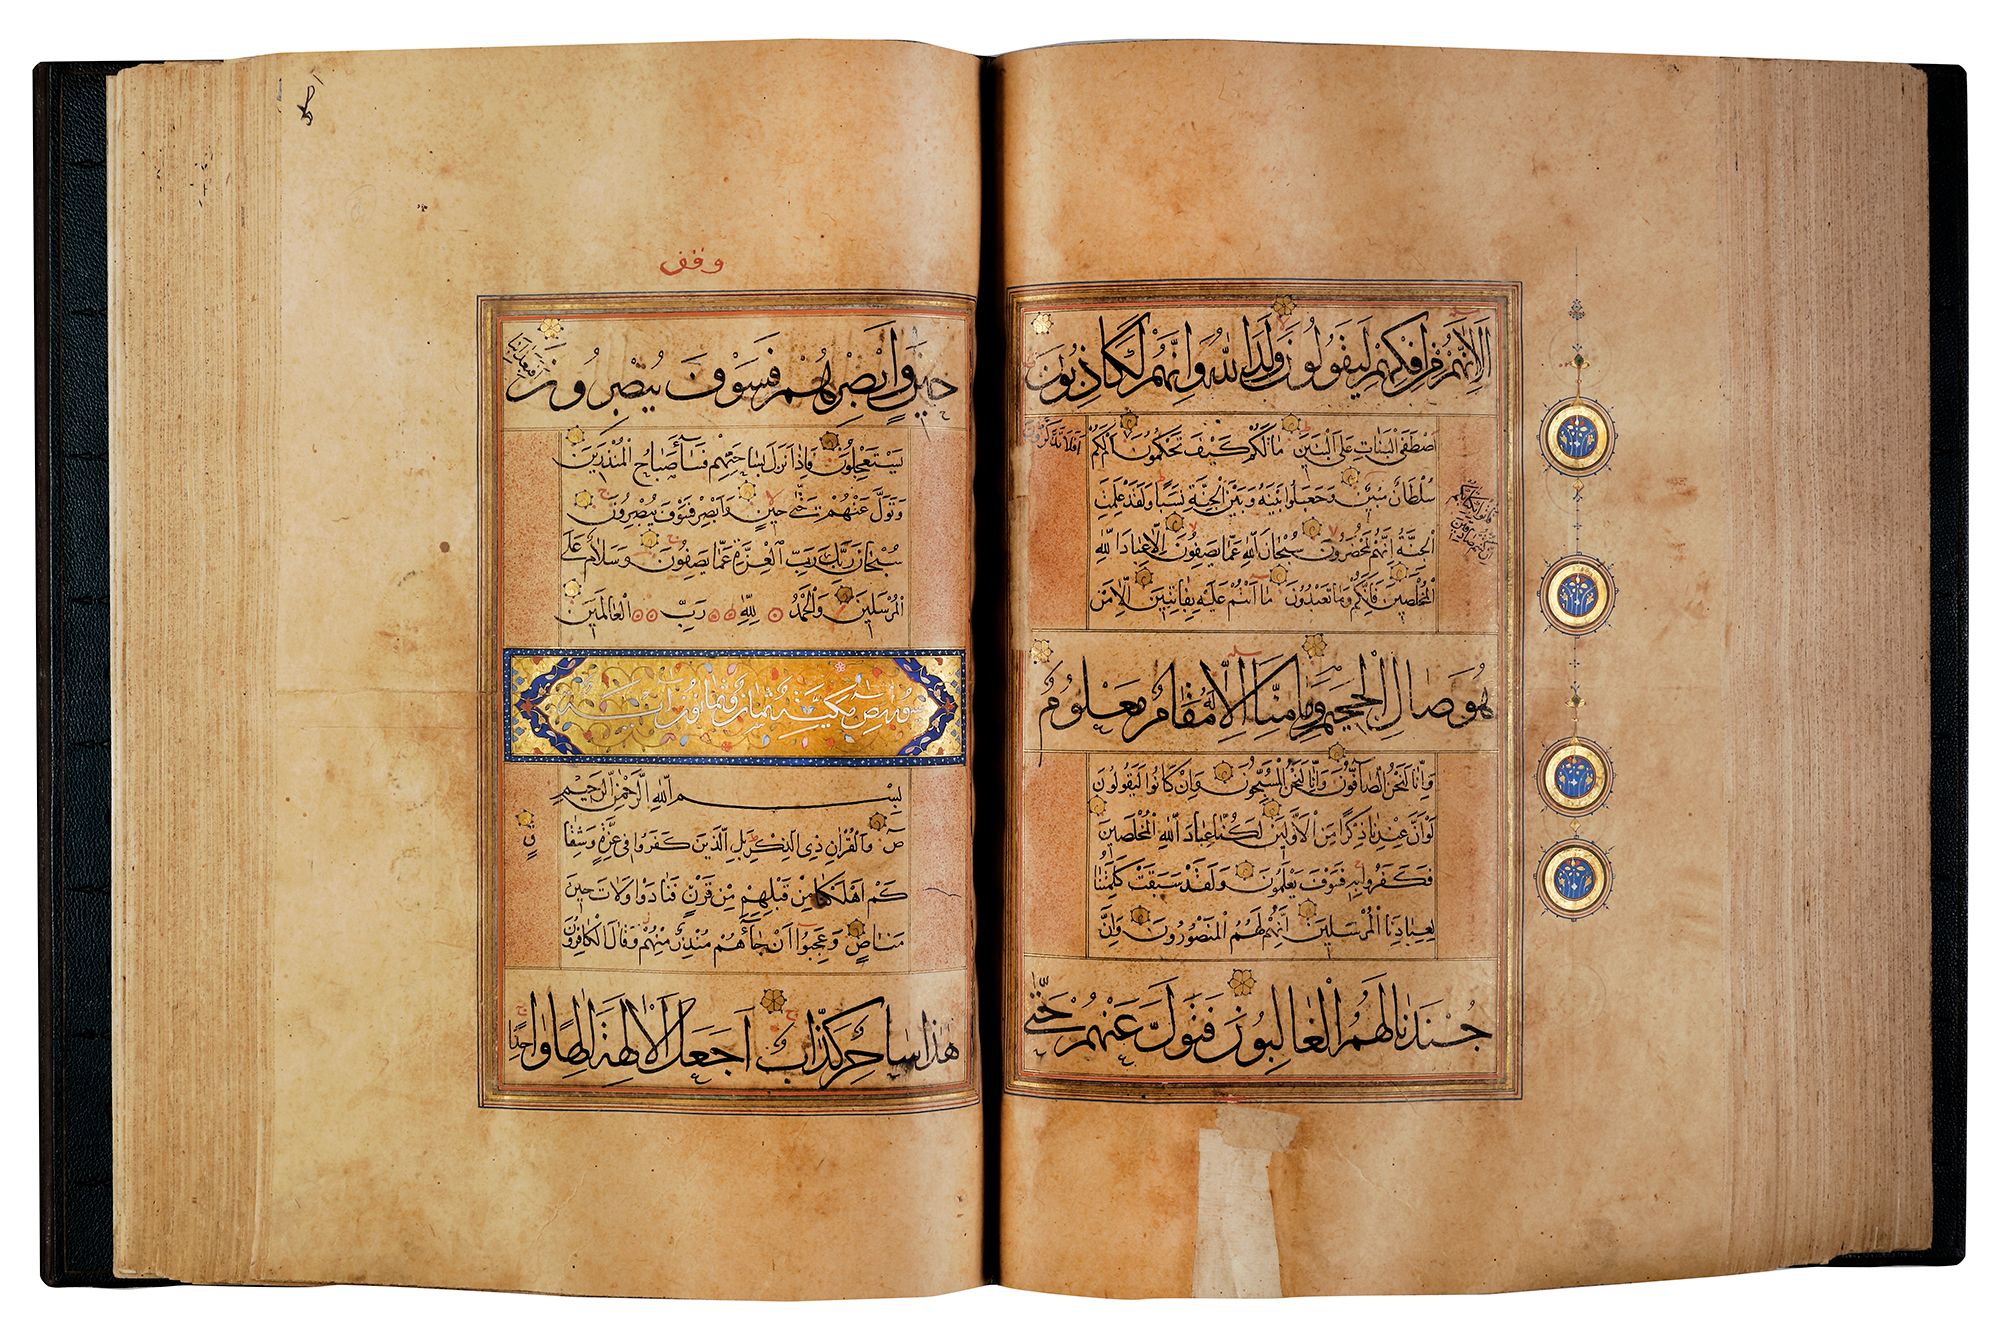 اَلَا اِنَّهُمْ مِنْ اِفْكِهِمْ لَيَقُولُونَ وَلَدَ اللهُ وَاِنَّهُمْ لَكَاذِبُونَ
اَصْطَفَى الْبَنَاتِ عَلَى الْبَنِينَ مَا لَكُمْ كَيْفَ تَحْكُمُونَ اَمْ لَكُمْ
اَفَلَا تَذَكَّرُونَ
سُلْطَانٌ مُبِينٌ وَجَعَلُوا بَيْنَهُ وَبَيْنَ الْجِنَّةِ نَسَبًا وَلَقَدْ عَلِمَتِ
فَأْتُوا بِكِتَابِكُمْ
اِنْ كُنْتُمْ صَادِقِينَ
الْجِنَّةُ اِنَّهُمْ لَمُحْضَرُونَ سُبْحَانَ اللهِ عَمَّا يَصِفُونَ اِلَّا عِبَادَ اللهِ
الْمُخْلَصِينَ فَاِنَّكُمْ وَمَا تَعْبُدُونَ مَا اَنْتُمْ عَلَيْهِ بِفَاتِنِينَ اِلَّا مَنْ
هُوَ صَالِ الْجَحِيمِ وَمَا مِنَّا اِلَّا لَهُ مَقَامٌ مَعْلُومٌ
وَاِنَّا لَنَحْنُ الصَّافُّونَ وَاِنَّا لَنَحْنُ الْمُسَبِّحُونَ وَاِنْ كَانُوا لَيَقُولُونَ
لَوْ اَنَّ عِنْدَنَا ذِكْرًا مِنَ الْاَوَّلِينَ لَكُنَّا عِبَادَ اللهِ الْمُخْلَصِينَ
فَكَفَرُوا بِهِ فَسَوْفَ يَعْلَمُونَ وَلَقَدْ سَبَقَتْ كَلِمَتُنَا
لِعِبَادِنَا الْمُرْسَلِينَ اِنَّهُمْ لَهُمُ الْمَنْصُورُونَ وَاِنَّ
جُنْدَنَا لَهُمُ الْغَالِبُونَ فَتَوَلَّ عَنْهُمْ حَتَّى
وقف
حِينٍ وَاَبْصِرْهُمْ فَسَوْفَ يُبْصِرُونَ اَفَبِعَذَابِنَا
يَسْتَعْجِلُونَ فَاِذَا نَزَلَ بِسَاحَتِهِمْ فَسَاءَ صَبَاحُ الْمُنْذَرِينَ
وَتَوَلَّ عَنْهُمْ حَتَّى حِينٍ وَاَبْصِرْ فَسَوْفَ يُبْصِرُونَ
سُبْحَانَ رَبِّكَ رَبِّ الْعِزَّةِ عَمَّا يَصِفُونَ وَسَلَامٌ عَلَى
الْمُرْسَلِينَ وَالْحَمْدُ لِلّٰهِ رَبِّ الْعَالَمِينَ
سورة ص مكية ثمان وثمانون اية
بِسْمِ اللهِ الرَّحْمٰنِ الرَّحِيمِ
صٓ وَالْقُرْاٰنِ ذِي الذِّكْرِ بَلِ الَّذِينَ كَفَرُوا فِي عِزَّةٍ وَشِقَاقٍ
كَمْ اَهْلَكْنَا مِنْ قَبْلِهِمْ مِنْ قَرْنٍ فَنَادَوْا وَلَاتَ حِينَ
مَنَاصٍ وَعَجِبُوا اَنْ جَاءَهُمْ مُنْذِرٌ مِنْهُمْ وَقَالَ الْكَافِرُونَ
هٰذَا سَاحِرٌ كَذَّابٌ اَجَعَلَ الْاٰلِهَةَ اِلٰهًا وَاحِدًا